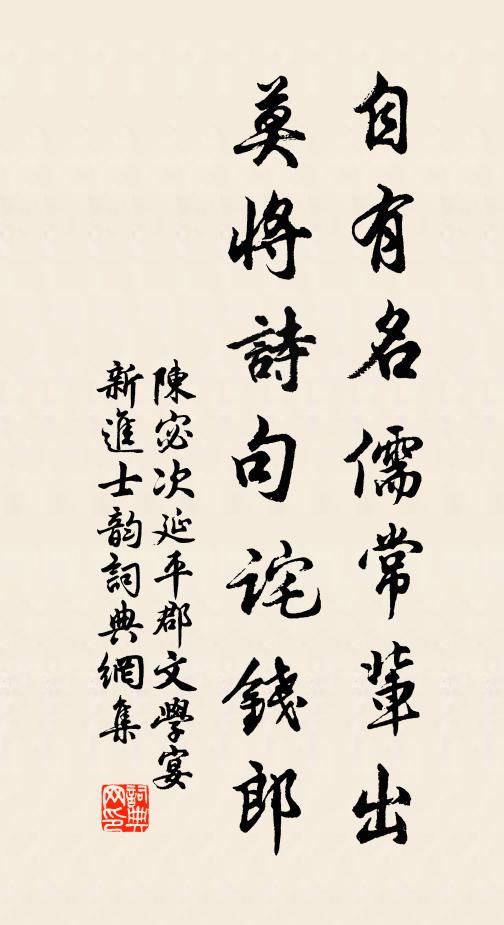 自有名儒常輩出
莫將詩句詫錢郎
陳宓次延平郡文學宴
新進士韵詞典網集
詞典
网印